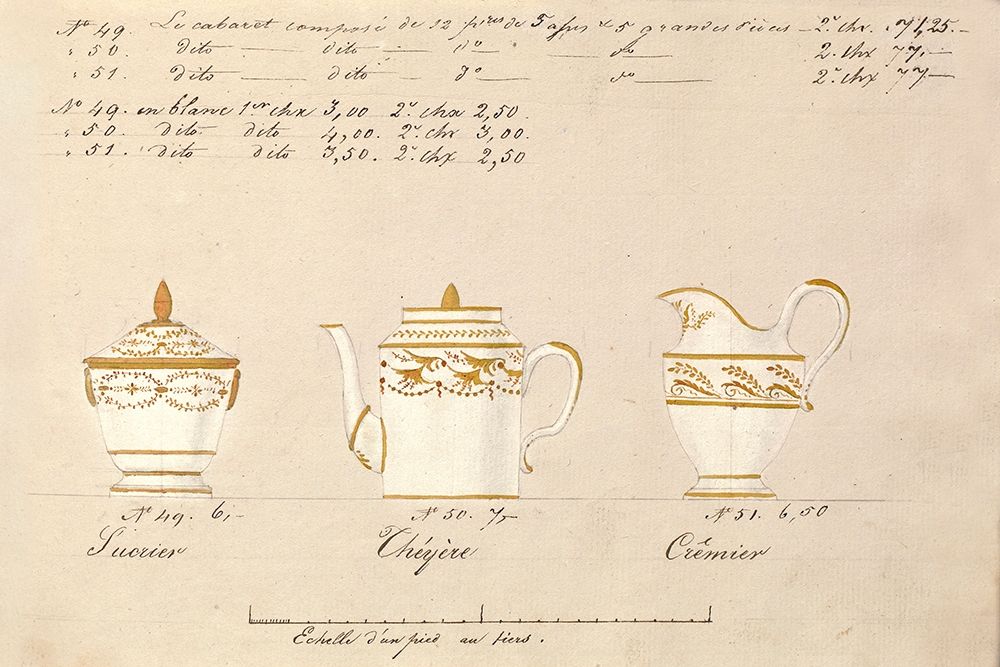 Nº 49. Le cabaret composé de 12 pièces de 7 tasses & 5 grandes pièces — 2.e chx. 71,25.—
" 50. dito — dito — dº — dº — 2.e chx 77,—
" 51. dito — dito — dº — dº — 2.e chx 77,—
Nº 49. en blanc 1.er chx 3,00 2.e chx 2,50.
" 50. dito dito 4,00. 2.e chx 3,00.
" 51. dito dito 3,50. 2.e chx 2,50
Nº 49. 6,— Nº 50. 7,— Nº 51. 6,50
Sucrier Théyère Crêmier
Echelle d'un pied au tiers.